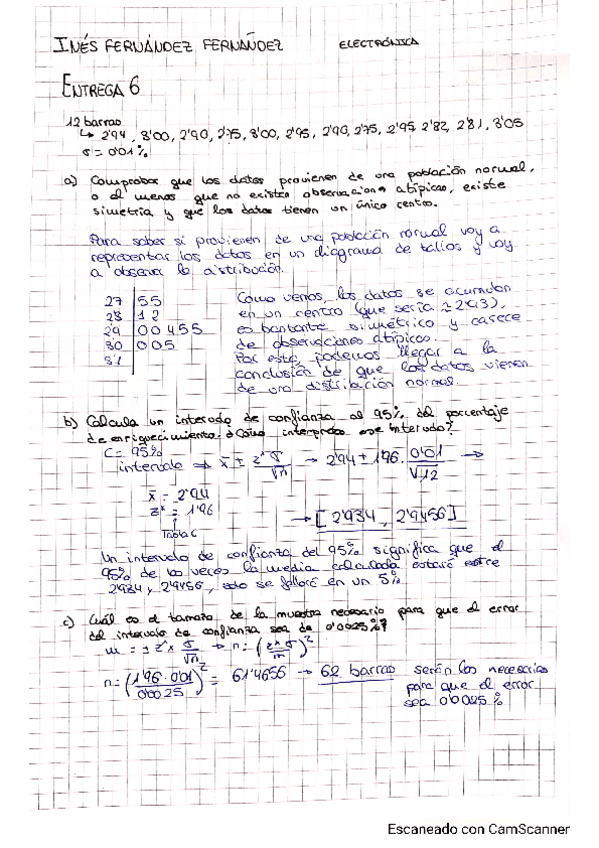 INÉS FERNÁNDEZ FERNÁNDEZ ELECTRÓNICA
ENTREGA 6
12 barras
↳ 2'94, 3'00, 2'90, 2'75, 3'00, 2'95, 2'90, 2'75, 2'95, 2'82, 2'81, 3'05
σ = 0'01 %
a) Comprobar que los datos provienen de una población normal,
o al menos que no existen observaciones atípicas, existe
simetría y que los datos tienen un único centro.
Para saber si provienen de una población normal voy a
representar los datos en un diagrama de tallos y voy
a observar la distribución.
27 | 55
28 | 12
29 | 00455
30 | 005
31 |
Como vemos, los datos se acumulan
en un centro (que sería ≈ 2'93),
es bastante simétrico y carece
de observaciones atípicas.
Por esto, podemos llegar a la
conclusión de que los datos vienen
de una distribución normal.
b) Calcula un intervalo de confianza al 95% del porcentaje
de enriquecimiento. ¿Cómo interpretas ese intervalo?
C = 95%
intervalo ⇒ x̄ ± z* σ/√n → 2'94 ± 1'96 · 0'01/√12 →
x̄ = 2'94
z* = 1'96
↑
Tabla C
→ [2'934, 2'9456]
Un intervalo de confianza del 95% significa que el
95% de las veces la media calculada estará entre
2'934 y 2'9456, solo se fallará en un 5%
c) ¿Cuál es el tamaño de la muestra necesario para que el error
del intervalo de confianza sea de 0'0025%?
m = ± z* σ/√n → n = (z* σ/m)²
n = (1'96 · 0'01/0'0025)² = 61'4656 → 62 barras serán las necesarias
para que el error
sea 0'0025 %
Escaneado con CamScanner